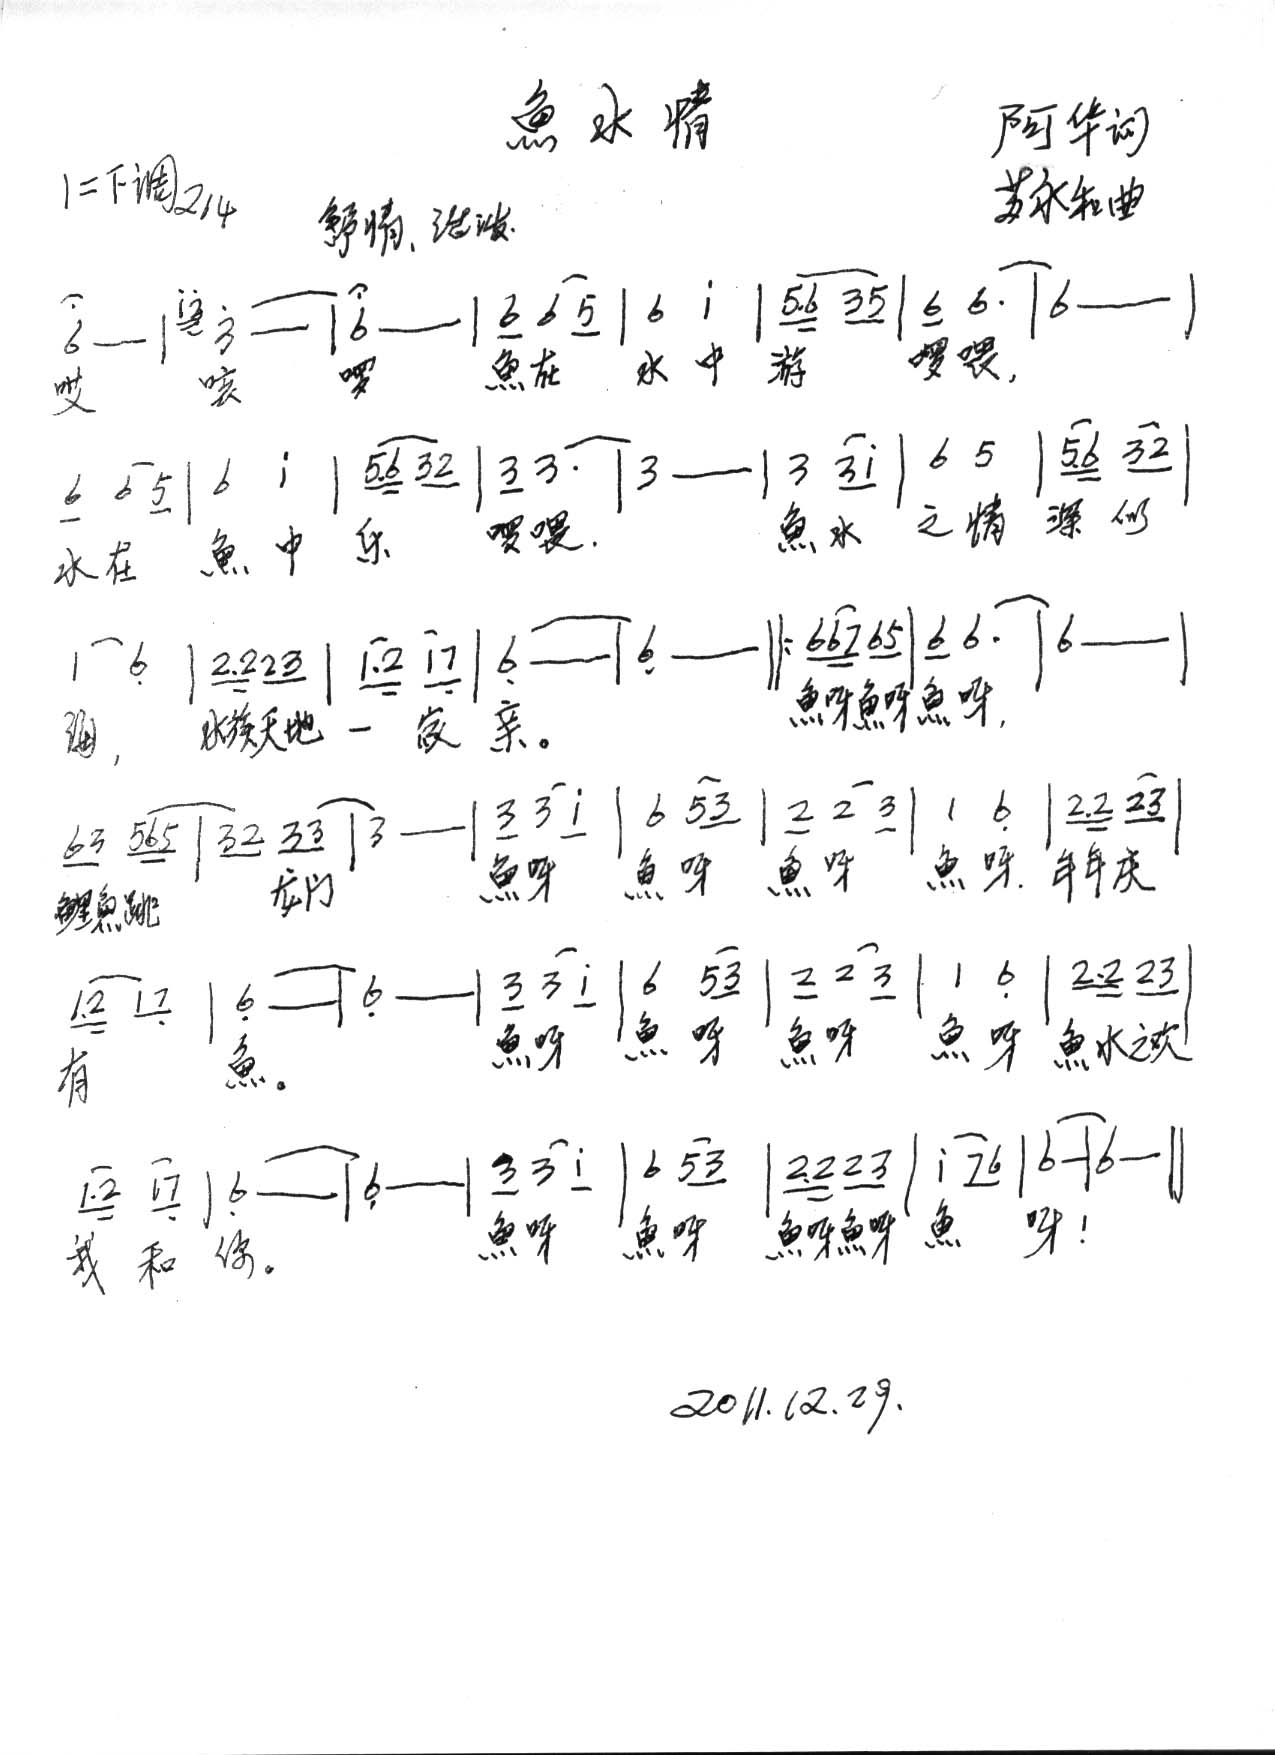 魚水情
阿华词
1=下调 2/4
舒情、活泼.
苏永和曲
6 — | i2 3 — | 6 — | 6 6 5 | 6 i | 5.6 35 | 6 6. | 6 — |
哎 咳 啰 魚在 水中 游 啰喂,
6 6 5 | 6 i | 5.6 32 | 3 3. | 3 — | 3 3i | 6 5 | 5.6 32 |
水在 魚中 乐 啰喂. 魚水 之情 深似
1 6 | 2.2 23 | 1.2 17 | 6 — | 6 — ‖: 667 65 | 6 6. | 6 — |
海, 水族天地 一家 亲。 魚呀魚呀魚呀,
63 565 | 32 33 | 3 — | 3 3 i | 6 53 | 2 2 3 | 1 6 | 2.2 23 |
鲤魚跳 龙门 魚呀 魚呀 魚呀 魚呀. 年年庆
1.2 17 | 6 — | 6 — | 3 3 i | 6 53 | 2 2 3 | 1 6 | 2.2 23 |
有 魚。 魚呀 魚呀 魚呀 魚呀 魚水之欢
1.2 17 | 6 — | 6 — | 3 3 i | 6 53 | 2.2 23 | i 76 | 6 — | 6 — ‖
我和你。 魚呀 魚呀 魚呀魚呀 魚 呀!
2011.12.29.